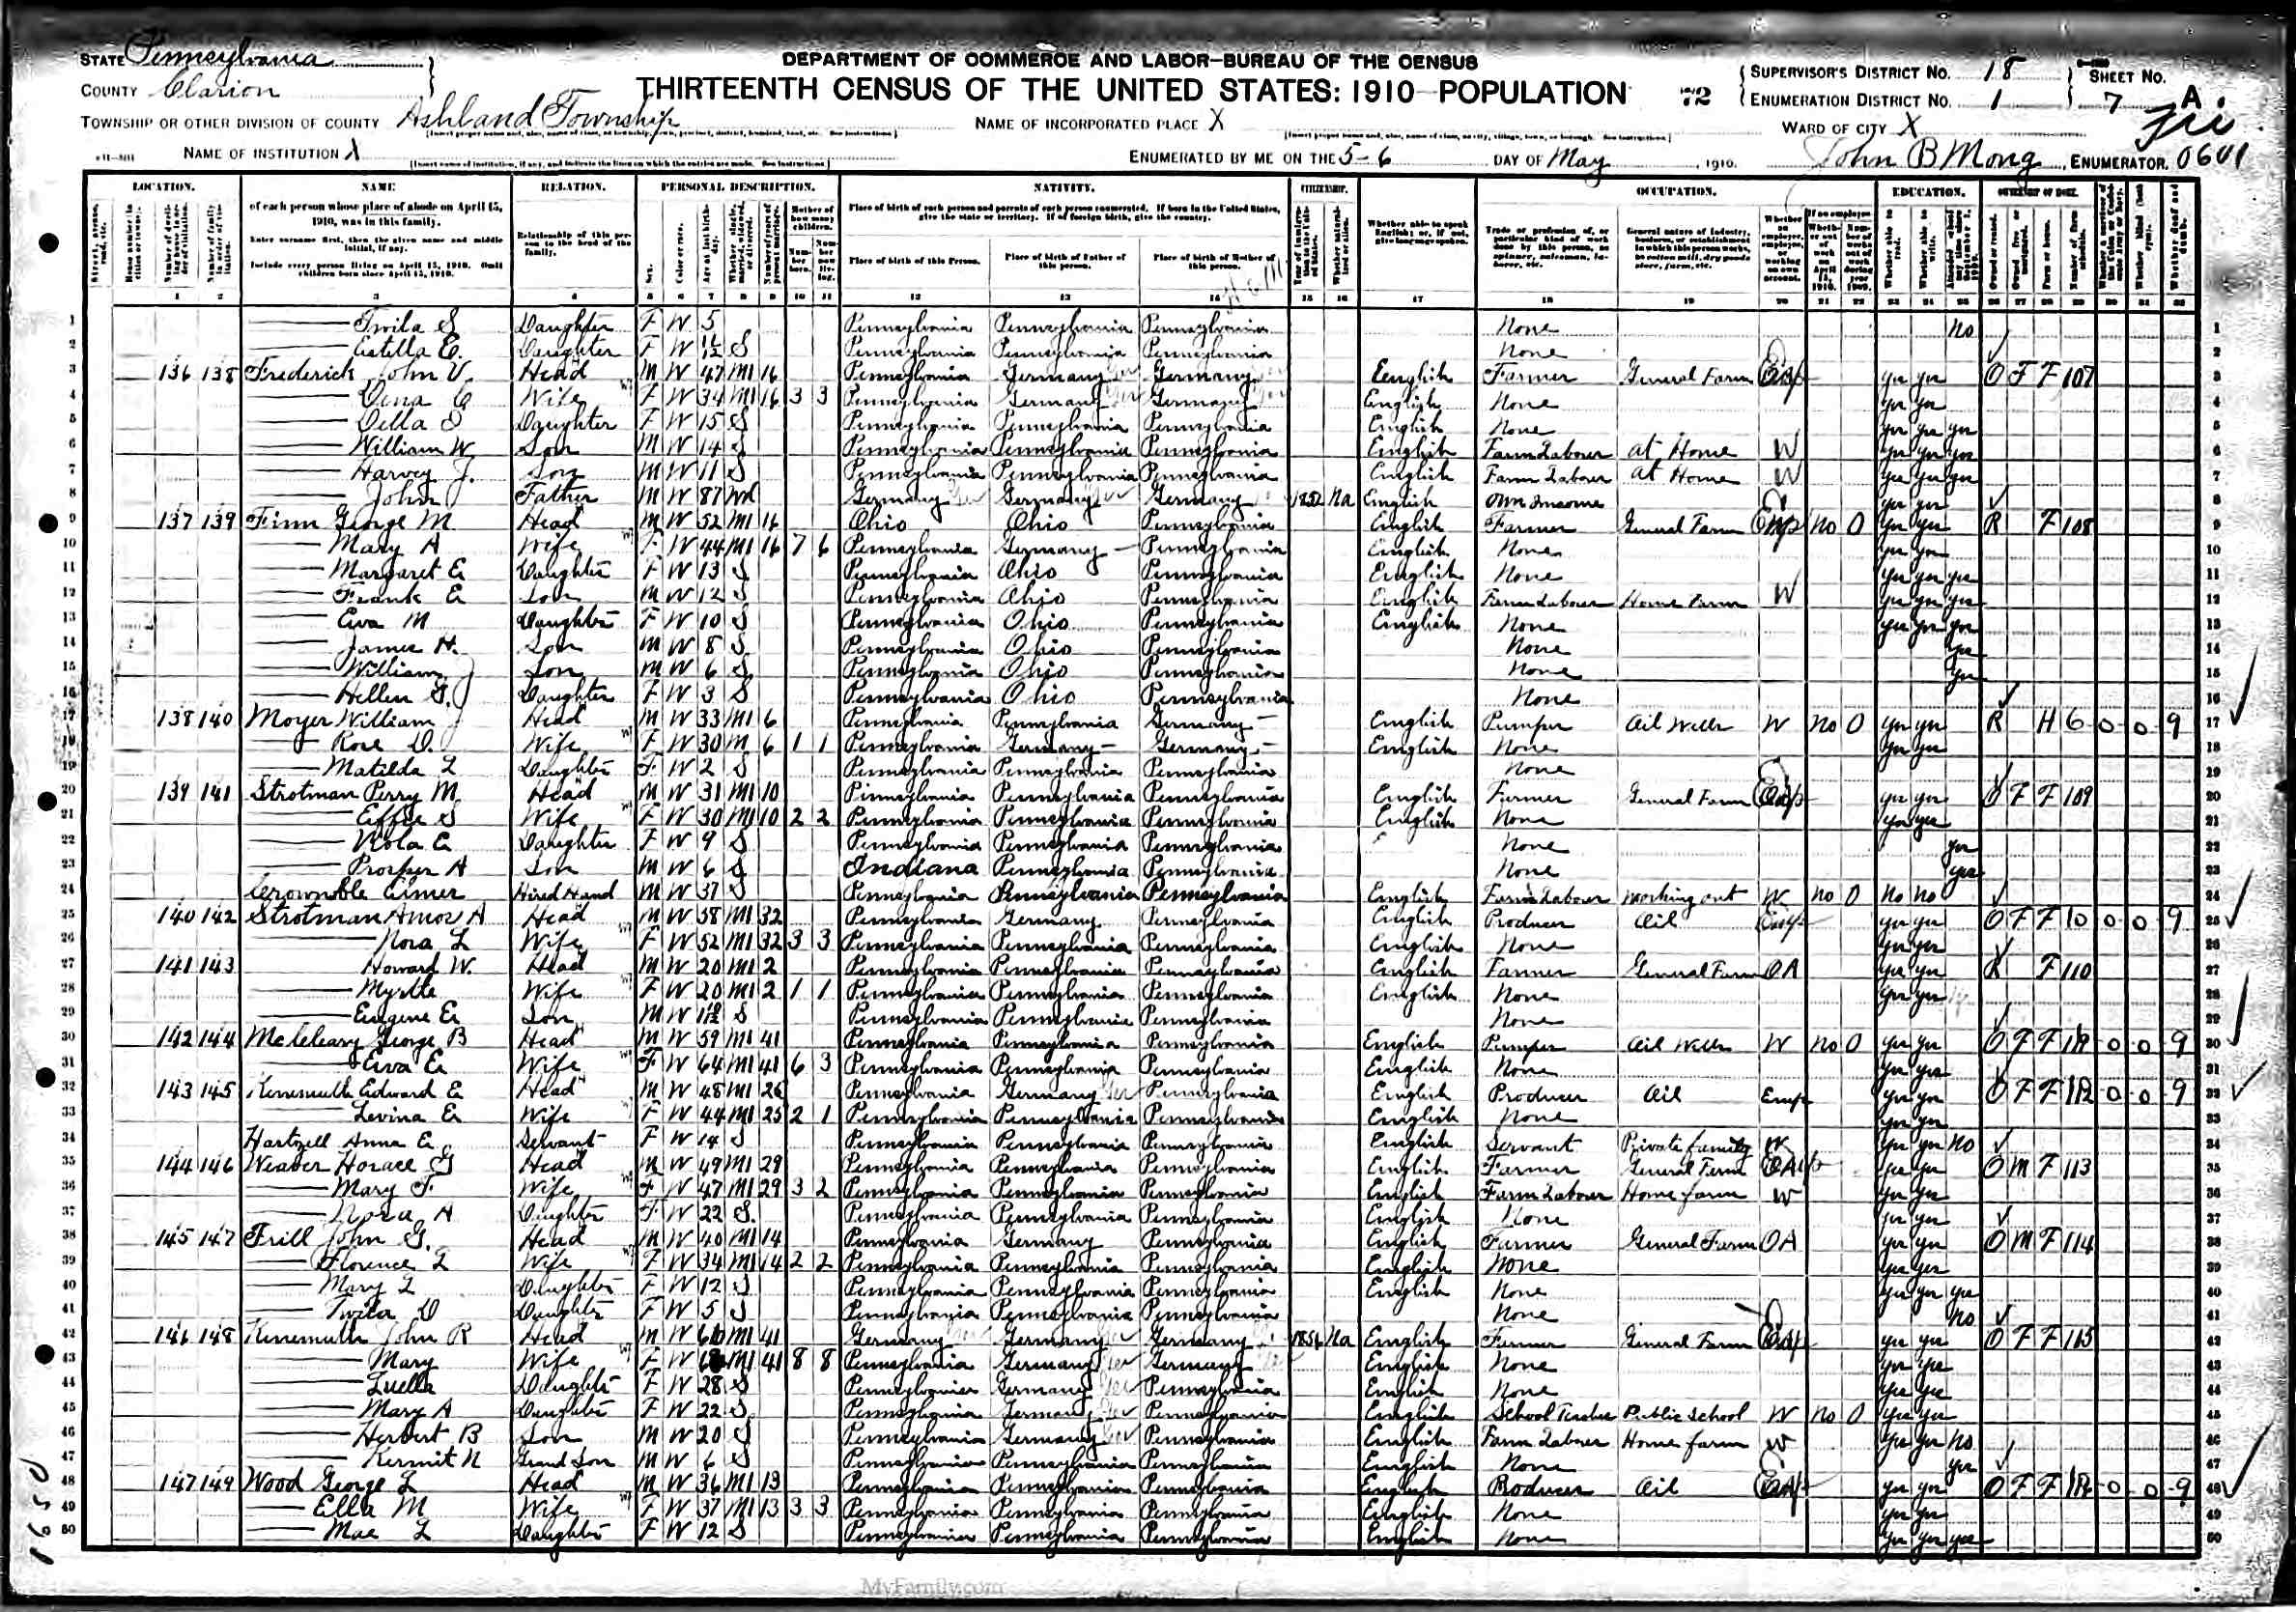 STATE Pennsylvania
COUNTY Clarion
TOWNSHIP OR OTHER DIVISION OF COUNTY Ashland Township
NAME OF INSTITUTION X
DEPARTMENT OF COMMERCE AND LABOR—BUREAU OF THE CENSUS
THIRTEENTH CENSUS OF THE UNITED STATES: 1910—POPULATION
72
NAME OF INCORPORATED PLACE X
ENUMERATED BY ME ON THE 5-6 DAY OF May, 1910.
SUPERVISOR'S DISTRICT NO. 18
ENUMERATION DISTRICT NO. 1
SHEET NO. 7 A.
WARD OF CITY X
John B Mong, ENUMERATOR. 0601
LOCATION. NAME RELATION. PERSONAL DESCRIPTION. NATIVITY. CITIZENSHIP. OCCUPATION. EDUCATION. OWNERSHIP OF HOME.
of each person whose place of abode on April 15, 1910, was in this family.
Enter surname first, then the given name and middle initial, if any.
Include every person living on April 15, 1910. Omit children born since April 15, 1910.
Relationship of this person to the head of the family.
Place of birth of each person and parents of each person enumerated. If born in the United States, give the state or territory. If of foreign birth, give the country.
Place of birth of this Person. Place of birth of Father of this person. Place of birth of Mother of this person.
Whether able to speak English; or, if not, give language spoken.
1 Twila S Daughter F W 5 Pennsylvania Pennsylvania Pennsylvania None No
2 Estella E. Daughter F W S Pennsylvania Pennsylvania Pennsylvania None
3 136 138 Frederick John V. Head M W 47 M1 16 Pennsylvania Germany Germany English Farmer General Farm Emp yes yes O F F 107
4 Wife F W 34 M1 16 3 3 Pennsylvania Germany Germany English None yes yes
5 Daughter F W 15 S Pennsylvania Pennsylvania Pennsylvania English None yes yes yes
6 William W. Son M W 14 S Pennsylvania Pennsylvania Pennsylvania English Farm Laborer at Home W yes yes yes
7 Harvey J. Son M W 11 S Pennsylvania Pennsylvania Pennsylvania English Farm Laborer at Home W yes yes yes
8 John Father M W 87 Wd Germany Germany Germany 1852 Na English Own Income yes yes
9 137 139 Finn George M Head M W 52 M1 16 Ohio Ohio Pennsylvania English Farmer General Farm Emp No O yes yes R F 108
10 Mary A Wife F W 44 M1 16 7 6 Pennsylvania Germany Pennsylvania English None yes yes
11 Margaret E Daughter F W 13 S Pennsylvania Ohio Pennsylvania English None yes yes yes
12 Frank E Son M W 12 S Pennsylvania Ohio Pennsylvania English Farm Laborer Home Farm W yes yes yes
13 Eva M Daughter F W 10 S Pennsylvania Ohio Pennsylvania English None yes yes yes
14 James H. Son M W 8 S Pennsylvania Ohio Pennsylvania None yes
15 William Son M W 6 S Pennsylvania Ohio Pennsylvania None yes
16 Hellen G. Daughter F W 3 S Pennsylvania Ohio Pennsylvania None
17 138 140 Moyer William Head M W 33 M1 6 Pennsylvania Pennsylvania Germany English Pumper Oil Wells W No O yes yes R H 6-0-0-9
18 Rose D. Wife F W 30 M 6 1 1 Pennsylvania Germany Germany English None yes yes
19 Matilda L Daughter F W 2 S Pennsylvania Pennsylvania Pennsylvania None
20 139 141 Strotman Perry M. Head M W 31 M1 10 Pennsylvania Pennsylvania Pennsylvania English Farmer General Farm yes yes O F F 109
21 Effie S Wife F W 30 M1 10 2 2 Pennsylvania Pennsylvania Pennsylvania English None yes yes
22 Daughter F W 9 S Pennsylvania Pennsylvania Pennsylvania None yes
23 Prosper A Son M W 6 S Indiana Pennsylvania Pennsylvania None yes
24 Elmer Hired Hand M W 37 S Pennsylvania Pennsylvania Pennsylvania English Farm Laborer Working out W No O No No
25 140 142 Strotman Amos A Head M W 58 M1 32 Pennsylvania Germany Pennsylvania English Producer Oil Emp yes yes O F F 10-0-0-9
26 Nora L Wife F W 52 M1 32 3 3 Pennsylvania Pennsylvania Pennsylvania English None yes yes
27 141 143 Howard W. Head M W 20 M1 2 Pennsylvania Pennsylvania Pennsylvania English Farmer General Farm OA yes yes R F 110
28 Myrtle Wife F W 20 M1 2 1 1 Pennsylvania Pennsylvania Pennsylvania English None yes yes
29 Eugene E Son M W S Pennsylvania Pennsylvania Pennsylvania None
30 142 144 McCleary George B Head M W 59 M1 41 Pennsylvania Pennsylvania Pennsylvania English Pumper Oil Wells W No O yes yes O F F -0-0-9
31 Eva E Wife F W 64 M1 41 6 3 Pennsylvania Pennsylvania Pennsylvania English None yes yes
32 143 145 Edward E Head M W 48 M1 Pennsylvania Germany Pennsylvania English Producer Oil Emp yes yes O F F -0-0-9
33 Levina E Wife F W 44 M1 25 2 1 Pennsylvania Pennsylvania Pennsylvania English None yes yes
34 Hartzell Anna E Servant F W 14 S Pennsylvania Pennsylvania Pennsylvania English Servant Private family W yes yes No
35 144 146 Weaver Horace G Head M W 49 M1 29 Pennsylvania Pennsylvania Pennsylvania English Farmer General Farm yes yes O M F 113
36 Mary F. Wife F W 47 M1 29 3 2 Pennsylvania Pennsylvania Pennsylvania English Farm Laborer Home farm W yes yes
37 Nora A Daughter F W 22 S. Pennsylvania Pennsylvania Pennsylvania English None yes yes
38 145 147 Frill John G. Head M W 40 M1 14 Pennsylvania Germany Pennsylvania English Farmer General Farm OA yes yes O M F 114
39 Florence L Wife F W 34 M1 14 2 2 Pennsylvania Pennsylvania Pennsylvania English None yes yes
40 Mary L Daughter F W 12 S Pennsylvania Pennsylvania Pennsylvania English None yes yes yes
41 Twila D Daughter F W 5 S Pennsylvania Pennsylvania Pennsylvania None No
42 146 148 John R Head M W M1 41 Germany Germany Germany 1856 Na English Farmer General Farm yes yes O F F 115
43 Mary Wife F W M1 41 8 8 Pennsylvania Germany Germany English None yes yes
44 Luella Daughter F W 28 S Pennsylvania Germany Pennsylvania English None yes yes
45 Mary A Daughter F W 22 S Pennsylvania Germany Pennsylvania English School Teacher Public School W No O yes yes
46 Herbert B Son M W 20 S Pennsylvania Germany Pennsylvania English Farm Laborer Home farm W yes yes No
47 Kermit N Grand Son M W 6 S Pennsylvania Pennsylvania Pennsylvania English None yes
48 147 149 Wood George L Head M W 36 M1 13 Pennsylvania Pennsylvania Pennsylvania English Producer Oil yes yes O F F -0-0-9
49 Ella M Wife F W 37 M1 13 3 3 Pennsylvania Pennsylvania Pennsylvania English None yes yes
50 Mae L Daughter F W 12 S Pennsylvania Pennsylvania Pennsylvania English None yes yes yes
MyFamily.com